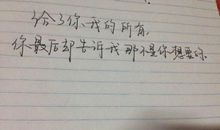 给了你、我的所有、
你最后却告诉我那不是你想要的.